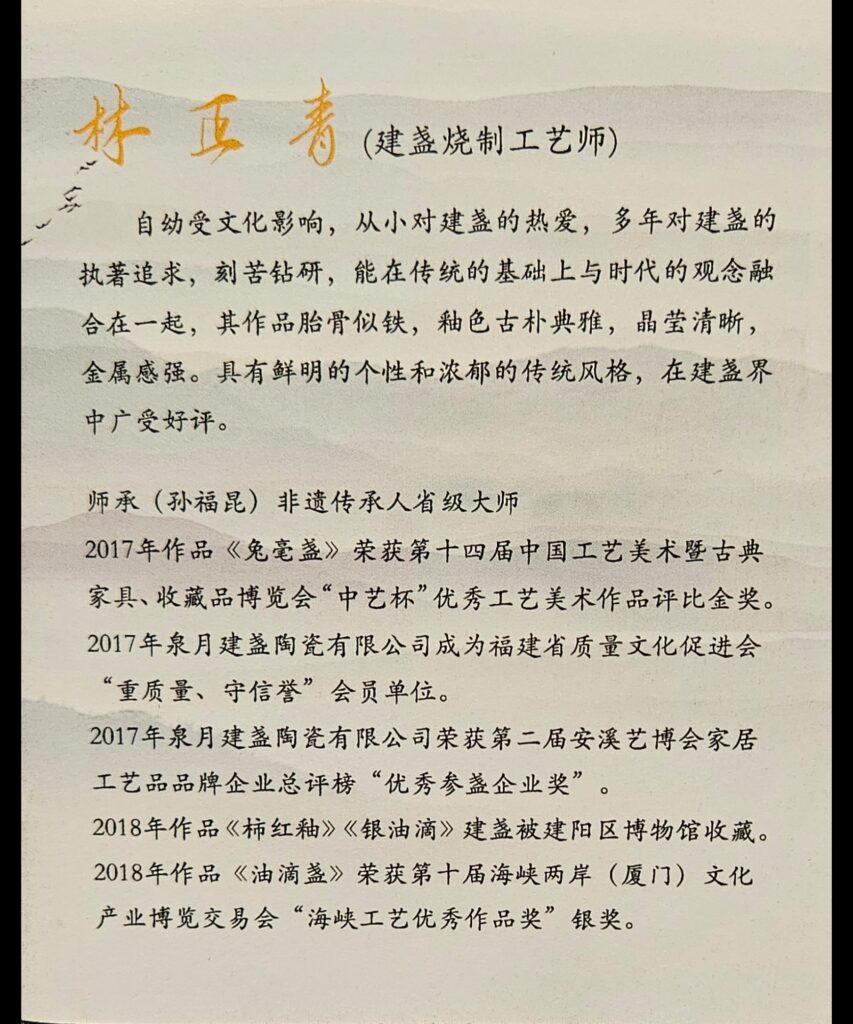 林正青 (建盏烧制工艺师)
自幼受文化影响，从小对建盏的热爱，多年对建盏的
执著追求，刻苦钻研，能在传统的基础上与时代的观念融
合在一起，其作品胎骨似铁，釉色古朴典雅，晶莹清晰，
金属感强。具有鲜明的个性和浓郁的传统风格，在建盏界
中广受好评。
师承（孙福昆）非遗传承人省级大师
2017年作品《兔毫盏》荣获第十四届中国工艺美术暨古典
家具、收藏品博览会“中艺杯”优秀工艺美术作品评比金奖。
2017年泉月建盏陶瓷有限公司成为福建省质量文化促进会
“重质量、守信誉”会员单位。
2017年泉月建盏陶瓷有限公司荣获第二届安溪艺博会家居
工艺品品牌企业总评榜“优秀参盏企业奖”。
2018年作品《柿红釉》《银油滴》建盏被建阳区博物馆收藏。
2018年作品《油滴盏》荣获第十届海峡两岸（厦门）文化
产业博览交易会“海峡工艺优秀作品奖”银奖。